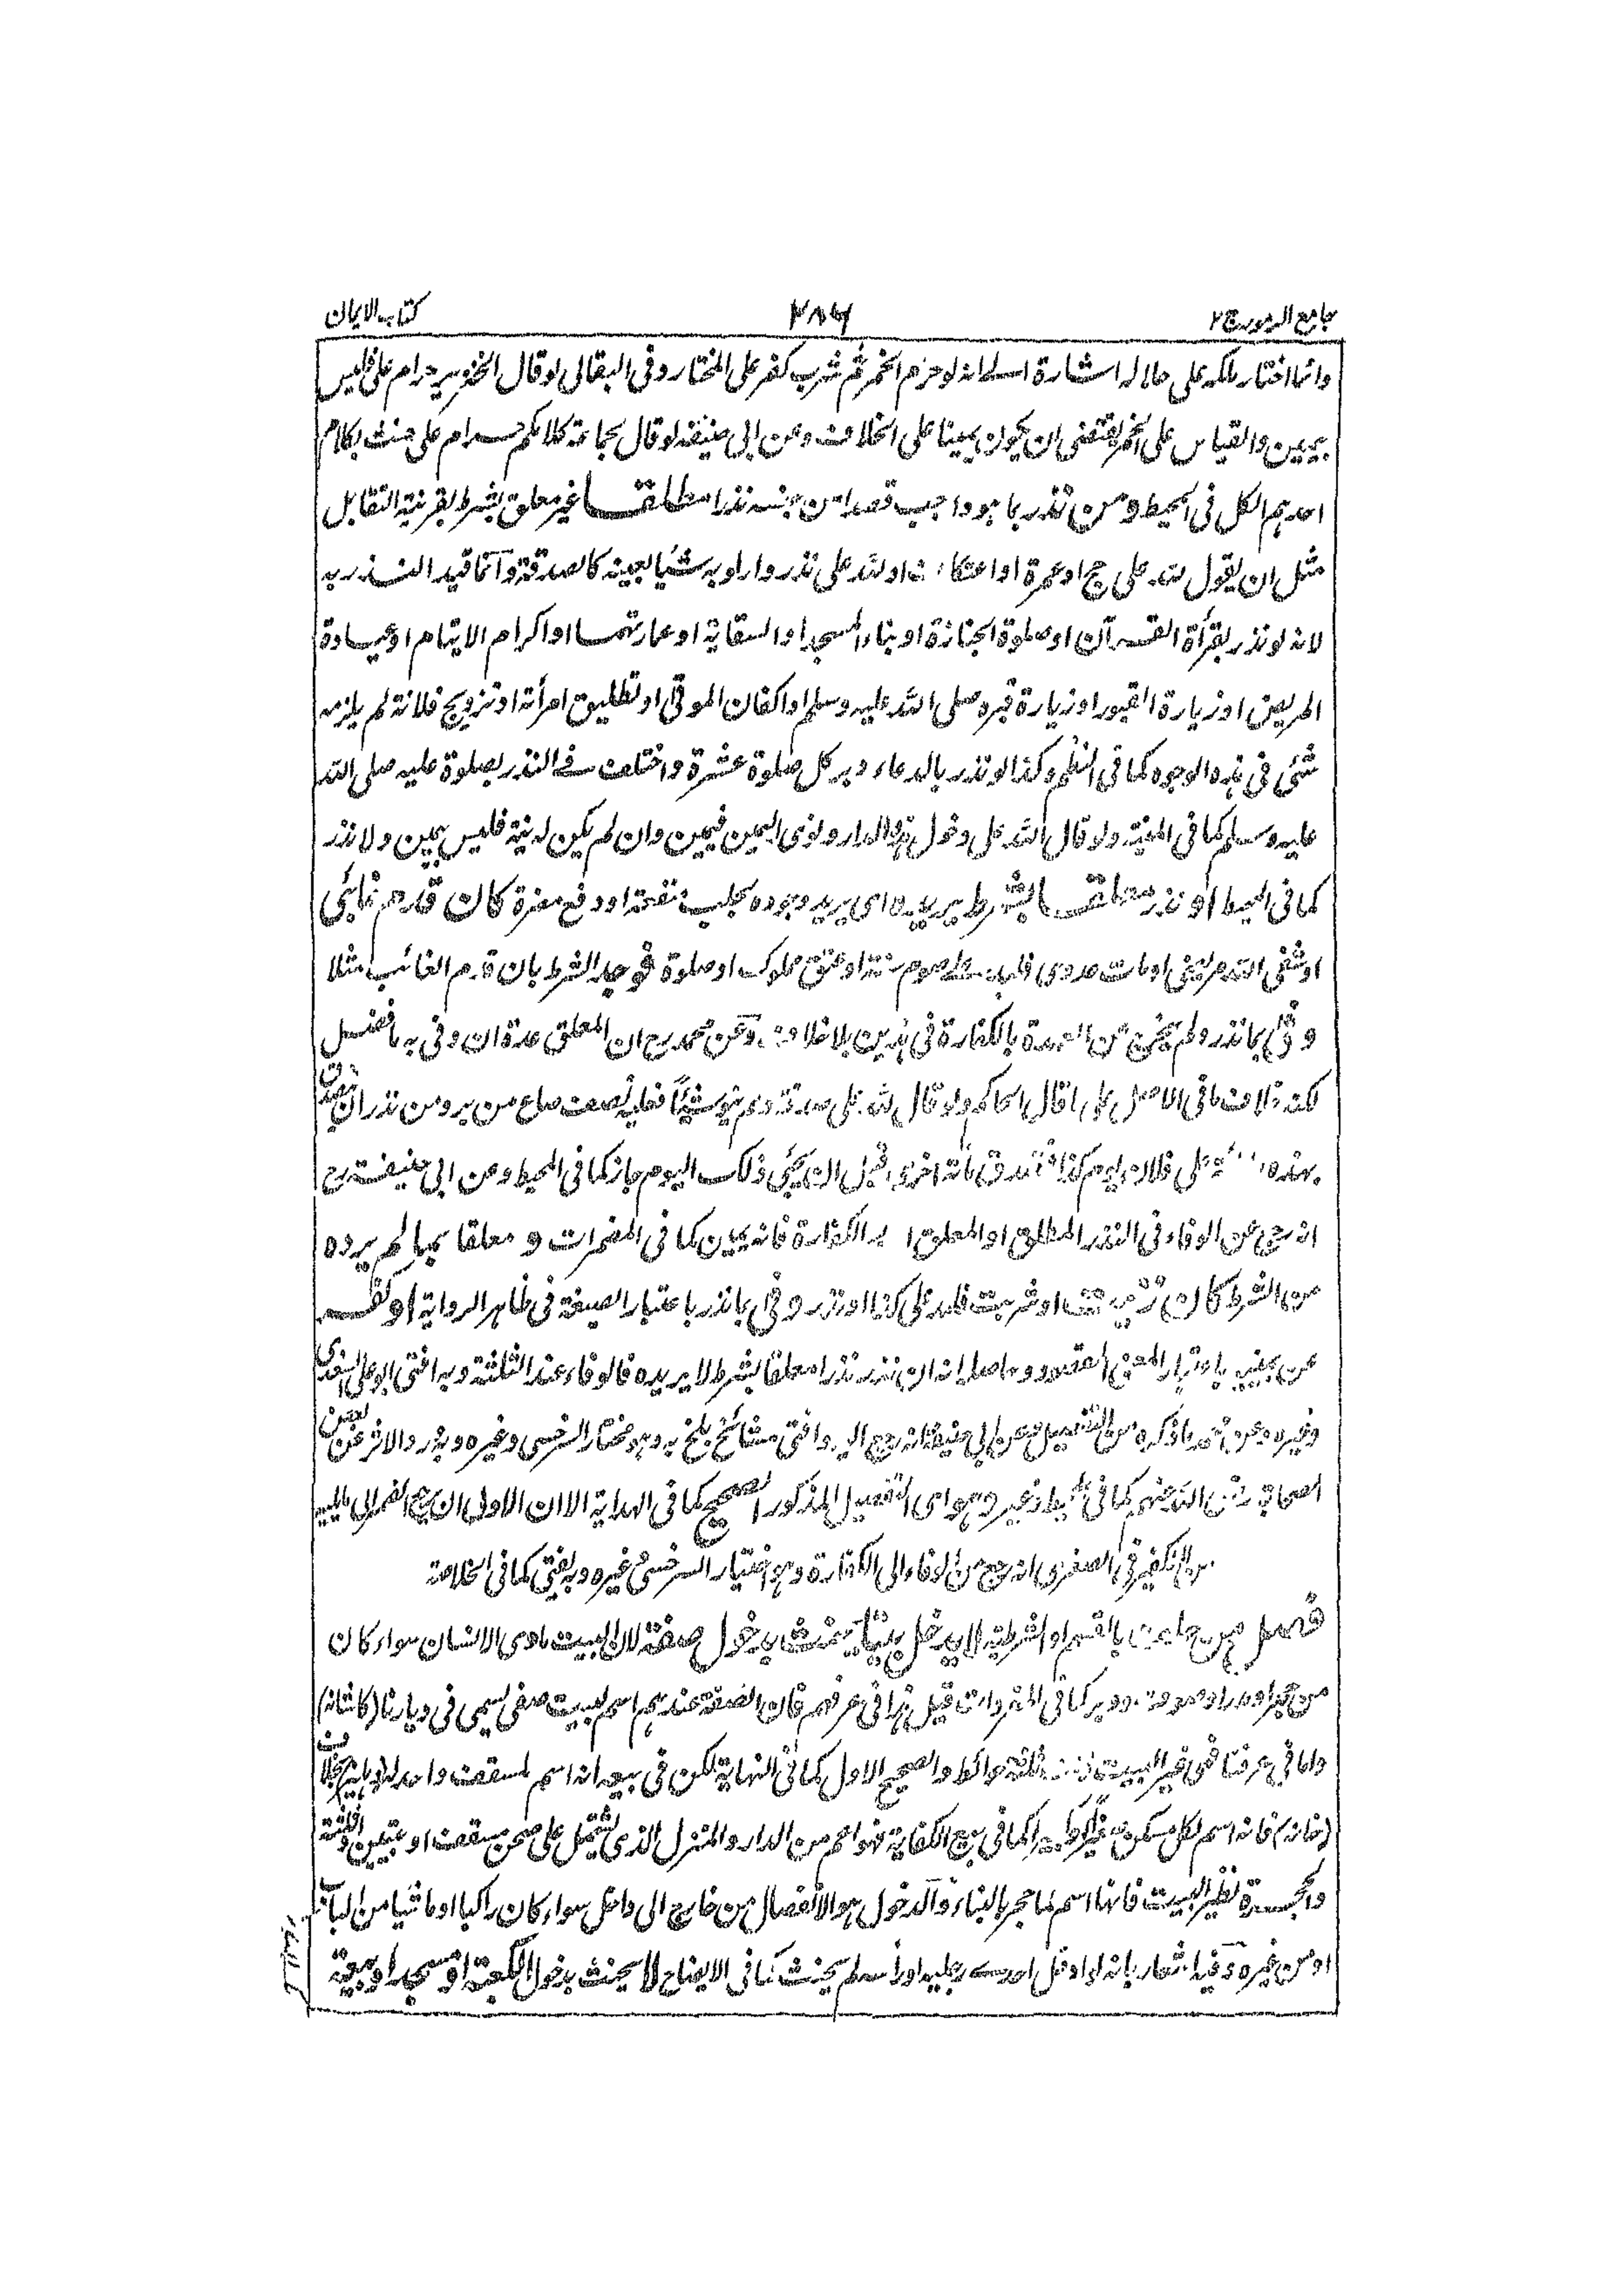 جامع الرموز ج٢
٣٨٦
كتاب الايمان
وانما اختار ملكه على حلاله اشارة الى انه لو حرم الخمر ثم شرب كفر على المختار وفى البقالى لو قال الخنزير حرام على فليس
بيمين والقياس على الخمر يقتضى ان يكون يمينا على الخلاف وعن ابى حنيفة لو قال لجماعة كلامكم حرام على حنث بكلام
احدهم الكل فى المحيط ومن نذر بما هو واجب قصدا من جنسه نذرا مطلقا غير معلق بشرط بقرينة التقابل
مثل ان يقول لله على حج او عمرة او اعتكاف او لله على نذر واراد به شيئا بعينه كالصدقة وانما قيد النذر به
لانه لو نذر بقرأة القرآن او صلوة الجنازة او بناء المسجد او السقاية او عمارتهما او اكرام الايتام او عيادة
المريض او زيارة القبور او زيارة قبره صلى الله عليه وسلم او اكفان الموتى او تطليق امرأته او تزويج فلانة لم يلزمه
شئى فى هذه الوجوه كما فى النظم وكذا لو نذر بالدعاء دبر كل صلوة عشرة واختلف فى النذر بصلوة عليه صلى الله
عليه وسلم كما فى المنية ولو قال لله على دخول هذه الدار ونوى اليمين فيمين وان لم يكن له نية فليس بيمين ولا نذر
كما فى المحيط او نذر معلقا بشرط يريده اى يريد وجوده لجلب منفعة او دفع مضرة كان قدم غائبى
او شفى الله مريضى او مات عدوى فلله على صوم سنة او عتق مملوك او صلوة فوجد الشرط بان قدم الغائب مثلا
وفى بما نذر ولم يخرج عن العهدة بالكفارة فى هذين بلا خلاف وعن محمد رح ان المعلق عدة ان وفى به فافضل
لكنه خلاف ما فى الاصل على ما قال الحاكم ولو قال لله على صدقة ولم ينو شيئا فعليه نصف صاع من بر ومن نذر ان يتصدق
بهذه المائة على فلان يوم كذا فتصدق بمائة اخرى قبل ان يجئى ذلك اليوم جاز كما فى المحيط وعن ابى حنيفة رح
انه رجع عن الوفاء فى النذر المطلق او المعلق الى الكفارة فانه يمين كما فى المضمرات و معلقا بما لم يرده
من الشرط كان زنيت او شربت فلله على كذا او نذر وفى بما نذر باعتبار الصيغة فى ظاهر الرواية او كفر
عن يمينه باعتبار المعنى المقصود وحاصله انه ان نذر نذرا معلقا بشرط لا يريده فالوفاء عند الثلثة وبه افتى ابو على السغدى
وغيره وعن محمد ما ذكره من التفصيل وعن ابى حنيفة انه رجع اليه وافتى مشائخ بلخ به وهو مختار السرخسى وغيره وبه ورد الاثر عن بعض
الصحابة رضى الله عنهم كما فى المحيط وغيره وهو اى التفصيل المذكور الصحيح كما فى الهداية الا ان الاولى ان يرجع الضمير الى ما يليه
من التكفير فى الصغرى انه رجع من الوفاء الى الكفارة وهو اختيار السرخسى وغيره وبه يفتى كما فى الخلاصة
فصل من حلف بالقسم او الشرطية لا يدخل بيتا يحنث بدخول صفة لان البيت ماوى الانسان سواء كان
من حجر او مدر او صوف او وبر كما فى المفردات قيل هذا فى عرفهم فان الصفة عندهم اسم لبيت صيفى يسمى فى ديارنا (كاشانه)
واما فى عرفنا فهى غير البيت ذات ثلثة حوائط والصحيح الاول كما فى النهاية لكن فى بيعه انه اسم لمسقف واحد له دهليز بخلاف
(خانه) فانه اسم لكل مسكن كما فى بيع الكفاية فهو اعم من الدار والمنزل الذى يشتمل على صحن مسقف او بيتين وثلثة
والحجرة نظير البيت فانها اسم لما حجر بالبناء والدخول هو الانفصال من خارج الى داخل سواء كان راكبا او ماشيا من الباب
او من غيره وفيه اشعار بانه لو ادخل احدى رجليه او رأسه لم يحنث كما فى الايضاح لا يحنث بدخول الكعبة او مسجد او بيعة